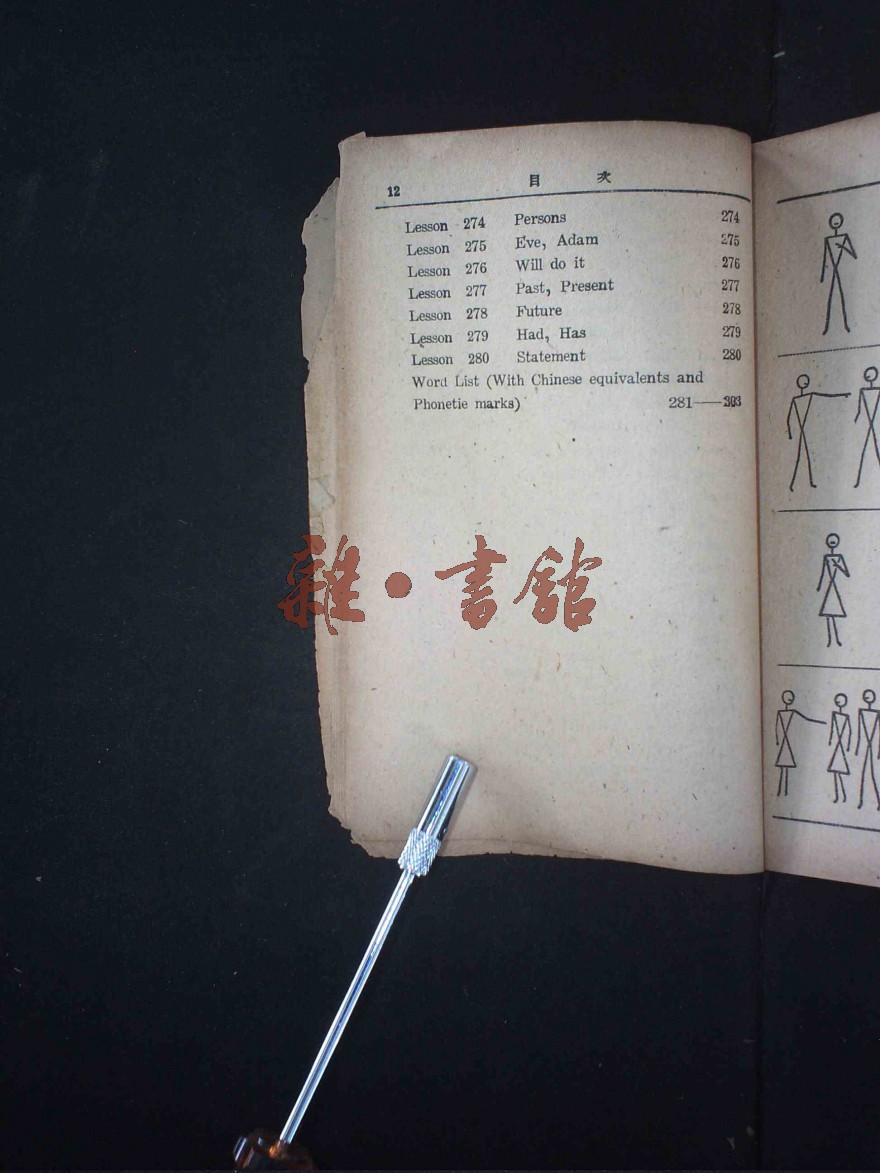 12 目 次
Lesson 274 Persons 274
Lesson 275 Eve, Adam 275
Lesson 276 Will do it 276
Lesson 277 Past, Present 277
Lesson 278 Future 278
Lesson 279 Had, Has 279
Lesson 280 Statement 280
Word List (With Chinese equivalents and
Phonetie marks) 281——303
雜·書館